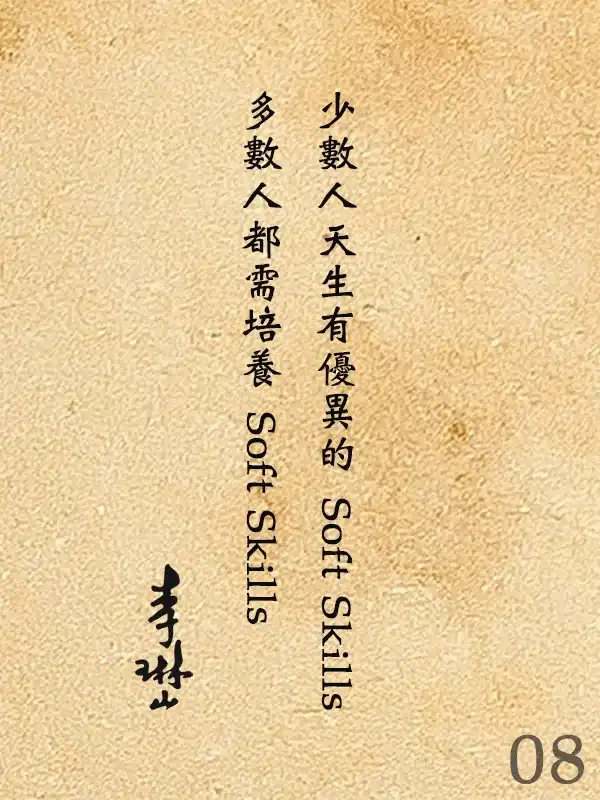 少數人天生有優異的 Soft Skills
多數人都需培養 Soft Skills
李琳山
08